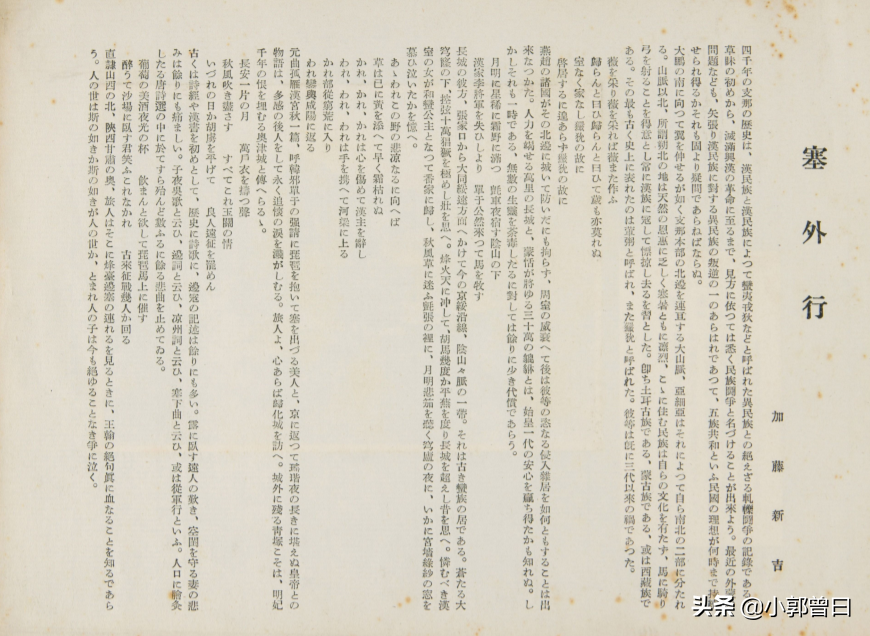 塞外行
加藤新吉
四千年の支那の歴史は、漢民族と漢民族によつて蠻夷戎狄などと呼ばれた異民族との絶えざる軋轢鬪爭の記錄である
草昧の初めから、滅滿興漢の革命に至るまで、見方に依つては悉く民族鬪爭と名づけることが出來よう。最近の外
問題なども、矢張り漢民族に對する異民族の叛逆の一のあらはれであつて、五族共和といふ民國の理想が何時まで
せられ得るかそれも固より疑問であらねばならぬ。
大鵬の南に向つて翼を伸せるが如く支那本部の北邊を連亙する大山脈、亞細亞はそれによつて自ら南北の二部に分たれ
る。山脈以北、所謂朔北の地は天然の恩惠に乏しく寒暑ともに凛烈、こゝに住む民族は自らの文化を有たず、馬に騎り
弓を射ることを得意とし常に漢族に寇して摽掠し去るを習とした。卽ち土耳古族である、蒙古族である、或は西藏族で
ある。その最も古く史上に表れたのは葷粥と呼ばれ、また玁狁と呼ばれた。彼等は旣に三代以來の禍であつた。
薇を采り薇を采れば薇また作ふ
歸らんと曰ひ歸らんと曰ひて歲も亦莫れぬ
室なく家なし玁狁の故に
啓居するに遑あらず玁狁の故に
燕趙の諸國がその北邊に城いて防いだにも拘らず、周室の威衰へて後は彼等の恣なる侵入雜居を如何ともすることは出
來なつかた。人力を竭せる萬里の長城と、蒙恬が將ゆる三十萬の貔貅とは、始皇一代の安心を贏ち得たかも知れぬ。し
かしそれも一時である、無數の生靈を荼毒したるに對しては餘りに少き代償であらう。
月明に星稀に霜野に滿つ　氈車夜宿す陰山の下
漢家李將軍を失ひしより　單于公然來つて馬を牧す
長城の彼方、張家口から大同綏遠方面へかけて今の京綏沿線、陰山々脈の一帶。それは古き蠻族の居である。蒼たる大
穹窿の下、控弦十萬羽檄を極めし壯を思へ。烽火天に冲して、胡馬幾度か平蕪を度り長城を超えし昔を思へ。憐むべき漢
室の女が和蠻公主となつて蕃家に歸し、秋風草に迷ふ氈張の裡に、月明悲笳を聽く穹廬の夜に、いかに宮墻綠紗の窓を
慕ひ泣いたかを憶へ。
あゝわれこの野の悲涼なるに向へば
草は已に黃を添へて早く霜枯れぬ
かれ、かれ、かれは心を傷めて漢主を辭し
われ、われ、われは手を携へて河梁に上る
かれ部從窮荒に入り
われ鑾輿咸陽に返る
元曲孤雁漢宮秋一篇、呼韓邪單于の强請に琵琶を抱いて塞を出づる美人と、京に返つて瑤階夜の長きに堪えぬ皇帝との
物語は、多感の後人をして永く追懷の淚を濺がしむる。旅人よ、心あらば歸化城を訪へ。城外に殘る靑塚こそは、明妃
千年の恨を埋むる奧津城と傳へらるゝ。
長安一片の月　萬戶衣を擣つ聲
秋風吹き盡さず　すべてこれ玉關の情
いづれの日か胡虜を平げて　良人遠征を罷めん
古くは詩經や漢書を初めとして、歷史に詩歌に、邊寇の記述は餘りにも多い。雲に臥す遠人の歎き、空閨を守る妻の悲
みは餘りにも痛ましい。子夜吳歌と云ひ、邊詞と云ひ、凉州詞と云ひ、塞下曲と云ひ、或は從軍行といふ。人口に膾炙
したる唐詩選の中に於てすら殆んど數ふるに餘る悲曲を止めてゐる。
葡萄の美酒夜光の杯　飮まんと欲して琵琶馬上に催す
醉うて沙場に臥す君笑ふこれなかれ　古來征戰幾人か回る
直隷山西の北、陝西甘肅の奧、旅人はそこに烽臺邊塞の連れるを見るときに、王翰の絕句眞に血なることを知るであら
う。人の世は斯の如きか斯の如きが人の世か、とまれ人の子は今も絕ゆることなき爭に泣く。
头条 @小郭曾曰